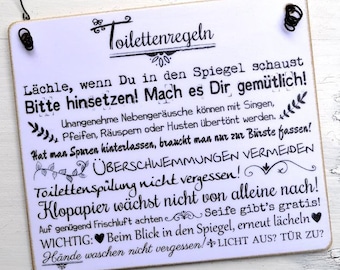 Toilettenregeln
Lächle, wenn Du in den Spiegel schaust
Bitte hinsetzen! Mach es Dir gemütlich!
Unangenehme Nebengeräusche können mit Singen,
Pfeifen, Räuspern oder Husten übertönt werden.
Hat man Spuren hinterlassen, braucht man nur zur Bürste fassen!
ÜBERSCHWEMMUNGEN VERMEIDEN
Toilettenspülung nicht vergessen!
Klopapier wächst nicht von alleine nach!
Auf genügend Frischluft achten Seife gibt's gratis!
WICHTIG: Beim Blick in den Spiegel, erneut lächeln
Hände waschen nicht vergessen! LICHT AUS? TÜR ZU?